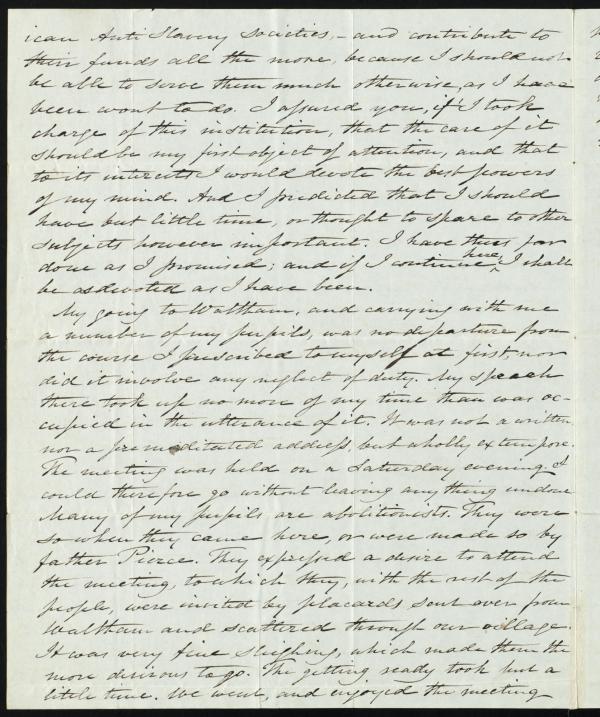 ican Anti Slavery Societies,– and contribute to
their funds all the more, because I should not
be able to serve them much otherwise, as I have
been wont to do. I assured you, if I took
charge of this institution, that the care of it
should be my first object of attention, and that
to its interests I would devote the best powers
of my mind. And I predicted that I should
have but little time, or thought to spare to other
subjects however important. I have thus far
done as I promised; and if I continue here, I shall
be as devoted as I have been.
My going to Waltham, and carrying with me
a number of my pupils, was no departure from
the course I prescribed to myself at first, nor
did it involve any neglect of duty. My speech
there took up no more of my time than was oc-
cupied in the utterance of it. It was not a written
nor a premeditated address, but wholly extempore.
The meeting was held on a Saturday evening. I
could therefore go without leaving any thing undone
Many of my pupils are abolitionists. They were
so when they came here, or were made so by
father Pierce. They expressed a desire to attend
the meeting, to which they, with the rest of the
people, were invited by placards sent over from
Waltham and scattered through our village.
It was very fine sleighing, which made them the
more desirous to go. The getting ready took but a
little time. We went, and enjoyed the meeting